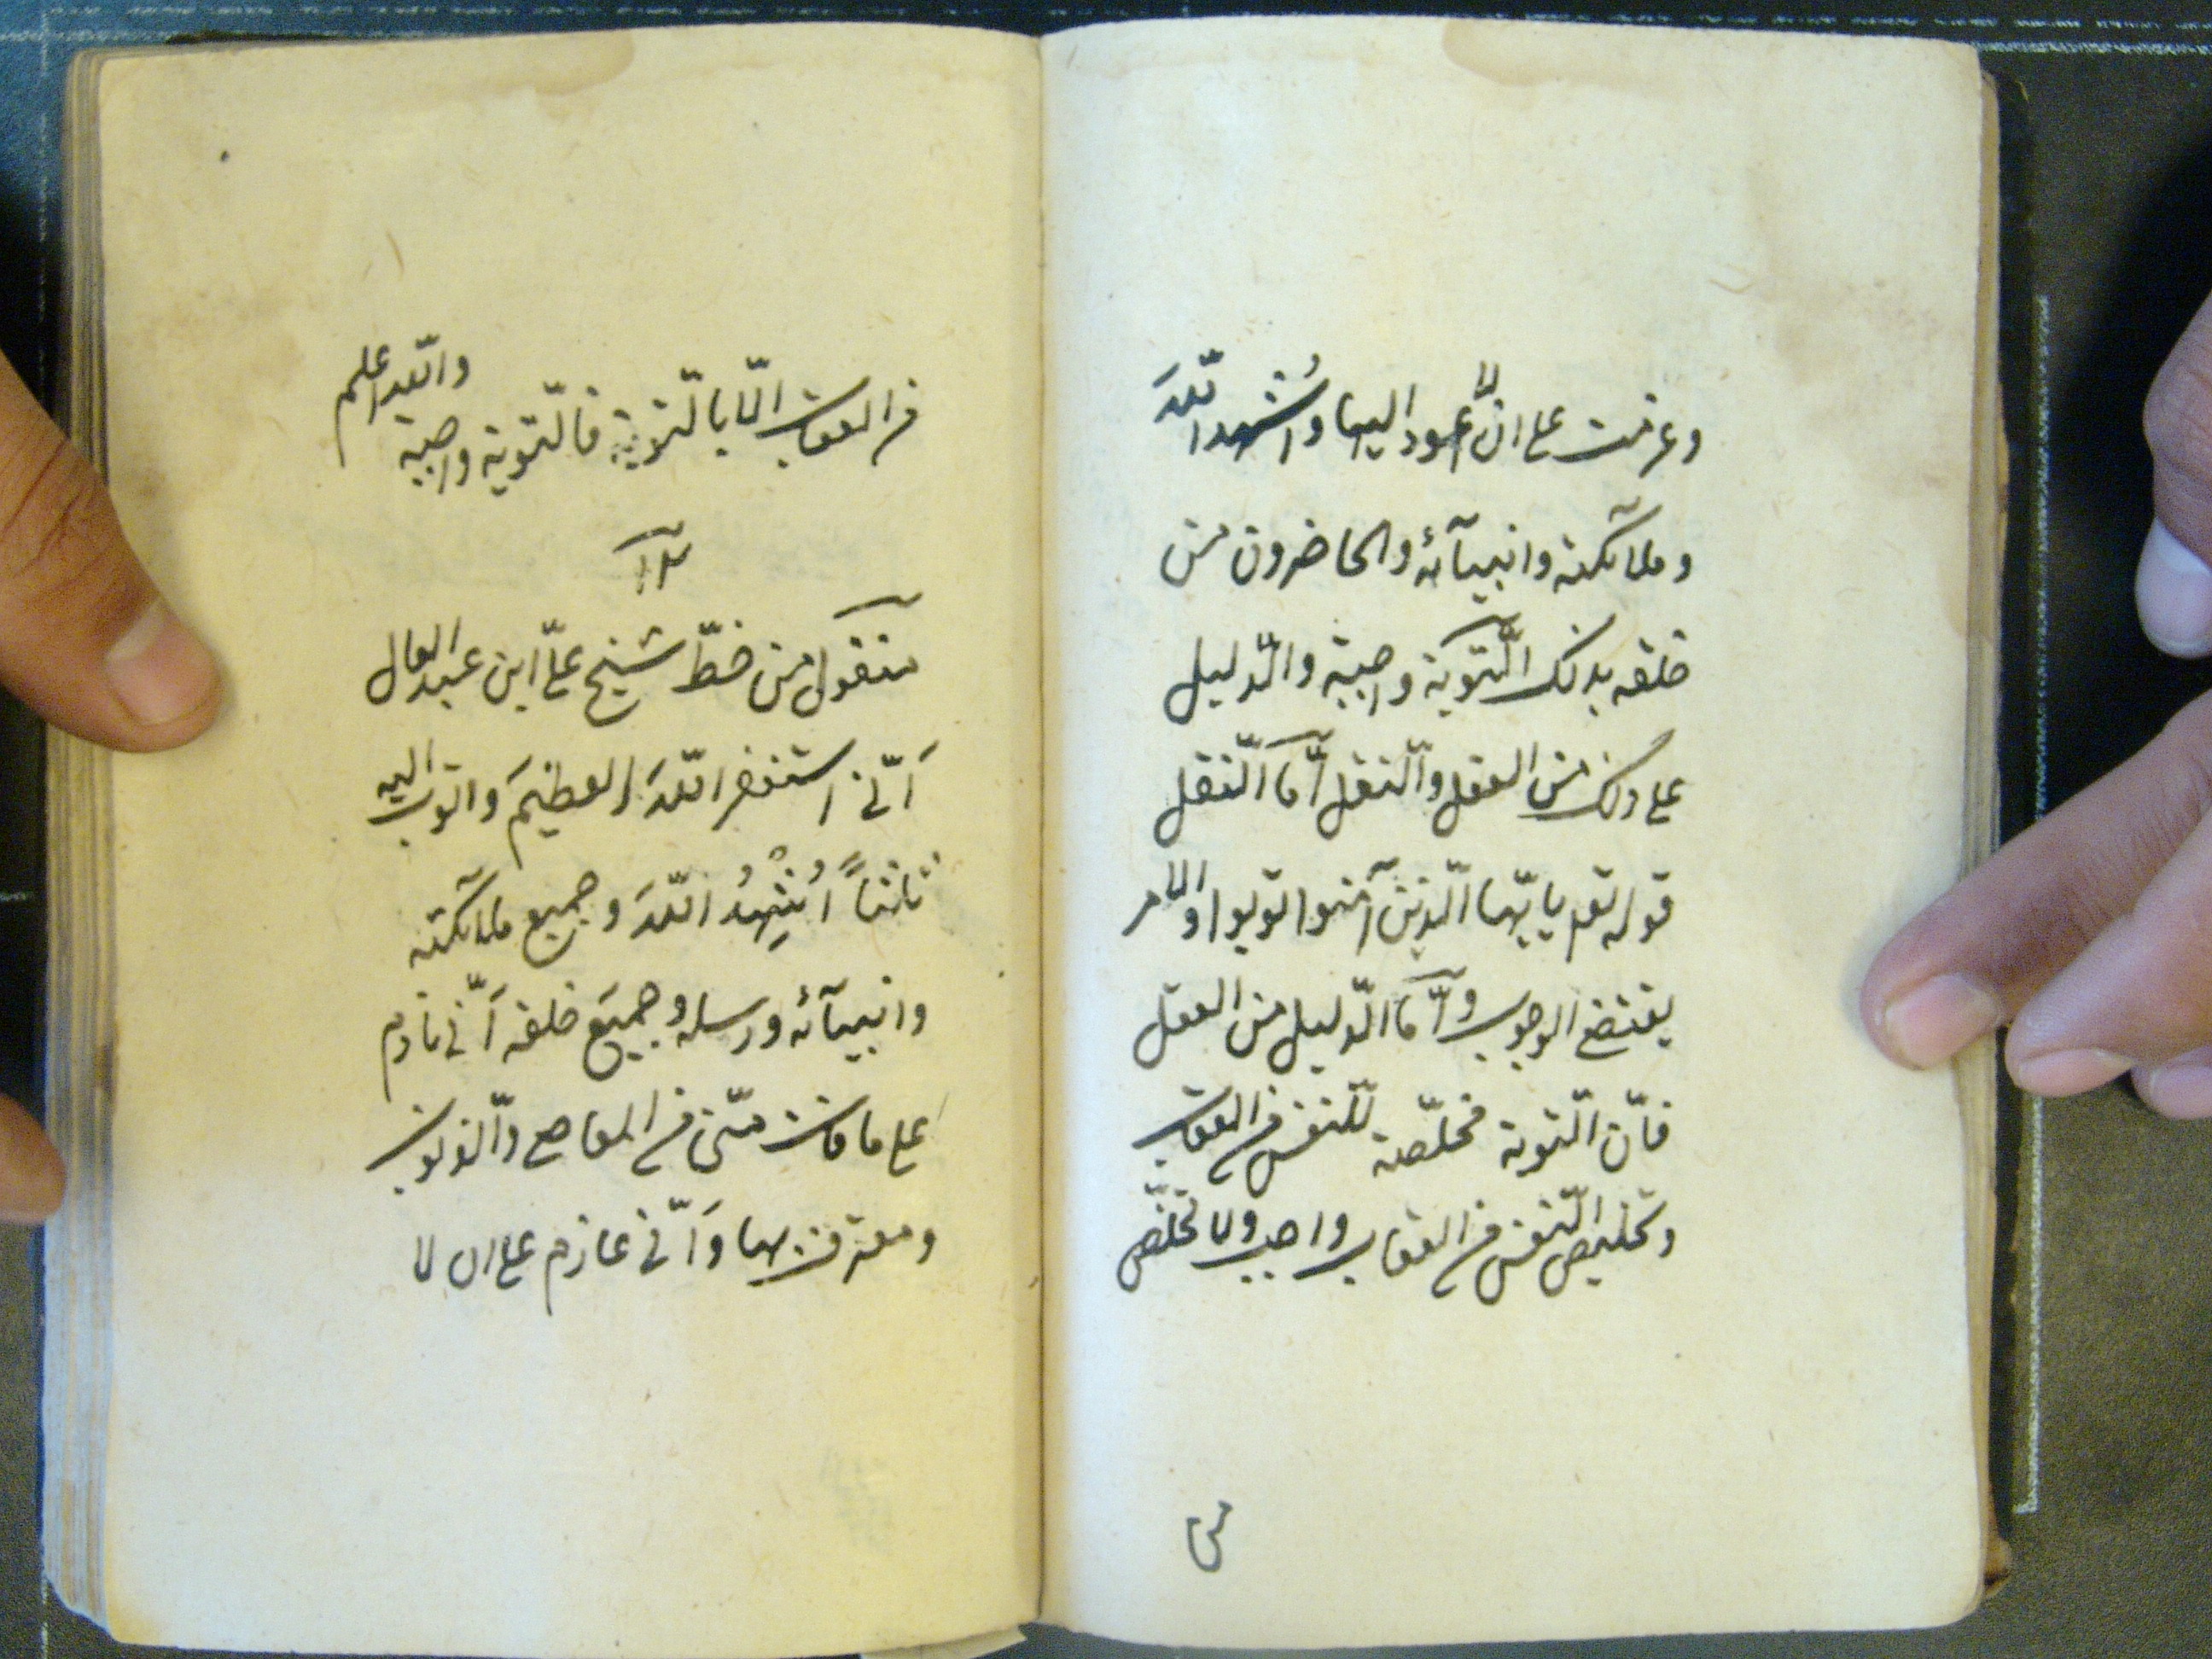 وعزمت على ان لا اعود اليها واُشهد اللهَ
وملآئكته وانبيآئه والحاضرون من
خلقه بذلك التّوبة واجبة والدّليل
على ذلك من العقل والنّقل أمّا النّقل
قوله تعه يا ايّها الّذين آمنوا توبوا والامر
يقتضى الوجوب وأمّا الدّليل من العقل
فانّ التّوبة مخلّصة للنّفس من العقاب
وتخليص النّفس من العقاب واجب ولا تخلّص
من
من العقاب الّا بالتّوبة فالتّوبة واجبة والله اعلم
منقول من خطّ شيخ علىّ ابن عبد العال
اَنّى استغفر اللهَ العظيمَ واتوب اليه
ثالثاً اُشْهِدُ اللهَ وجميع ملآئكته
وانبيآئه ورسله وجميعَ خلقه اَنّى نادم
على ما فات منّى من المعاصى والذّنوب
ومعترف بها واَنّى عازم على ان لا